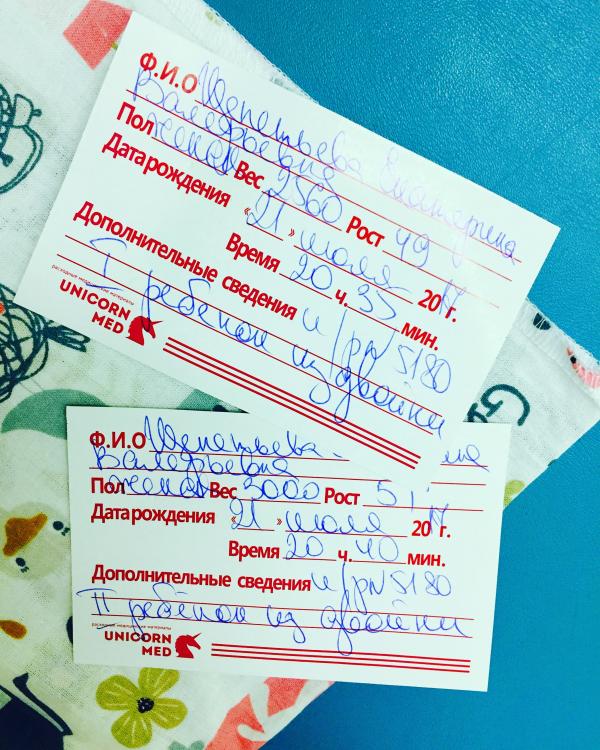 Ф.И.О Шепетьева Екатерина
Валерьевна
Пол женск Вес 2560 Рост 49
Дата рождения «21» июля 2017 г.
Время 20 ч. 35 мин.
Дополнительные сведения и/р № 5180
I ребёнок из двойни
расходные медицинские материалы
UNICORN
MED
Ф.И.О Шепетьева
Валерьевна
Пол женск Вес 3000 Рост 51
Дата рождения «21» июля 2017 г.
Время 20 ч. 40 мин.
Дополнительные сведения и/р № 5180
II ребёнок из двойни
расходные медицинские материалы
UNICORN
MED